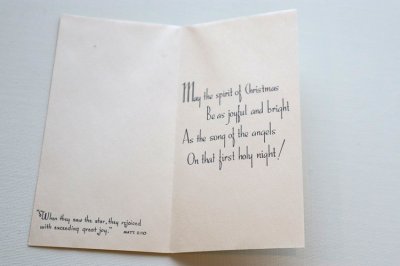 "When they saw the star, they rejoiced
with exceeding great joy."   MATT. 2:10
May the spirit of Christmas
Be as joyful and bright
As the song of the angels
On that first holy night!